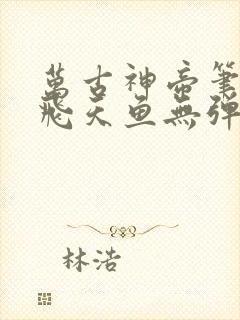 萬古神帝筆
飛天魚無彈
林浩